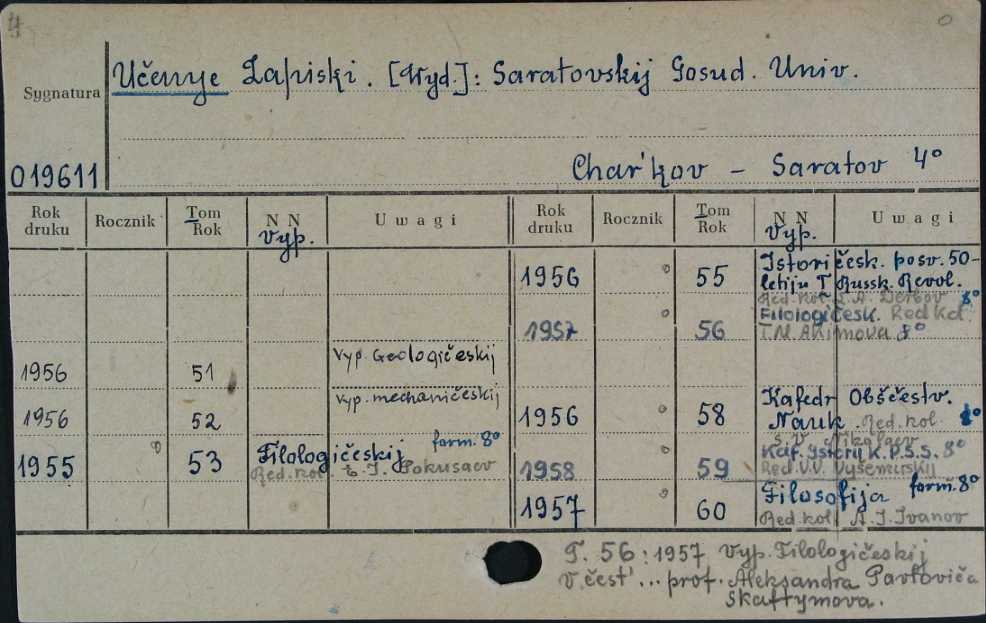 4
0
Sygnatura
Učenye Zapiski. [Wyd.]: Saratovskij Gosud. Univ.
019611
Char'kov – Saratov 4°
Rok druku
Rocznik
Tom Rok
N N Vyp.
Uwagi
Rok druku
Rocznik
Tom Rok
N N Vyp.
Uwagi
1956 51 Vyp. Geologičeskij
1956 52 Vyp. mechaničeskij
1955 ° 53 Filologičeskij form. 8°
Red. kol. E. I. Pokusaev
1956 ° 55 Istoričesk. posv. 50-
letiju I Russk. Revol.
Red. kol. L.A. Derbov 8°
1957 ° 56 Filologičesk. Red kol.
T.M. Akimova 8°
1956 ° 58 Kafedr Obščestv.
Nauk. Red. kol. 8°
S. V. Nikolaev
1958 59 Kaf. Istorij K.P.S.S. 8°
Red. V.V. Vyšemirskij
1957 ° 60 Filosofija form. 8°
Red. kol. A. I. Ivanov
T. 56: 1957 Vyp. Filologičeskij
V. čest' ... prof. Aleksandra Pavłoviča
Skaftymova.